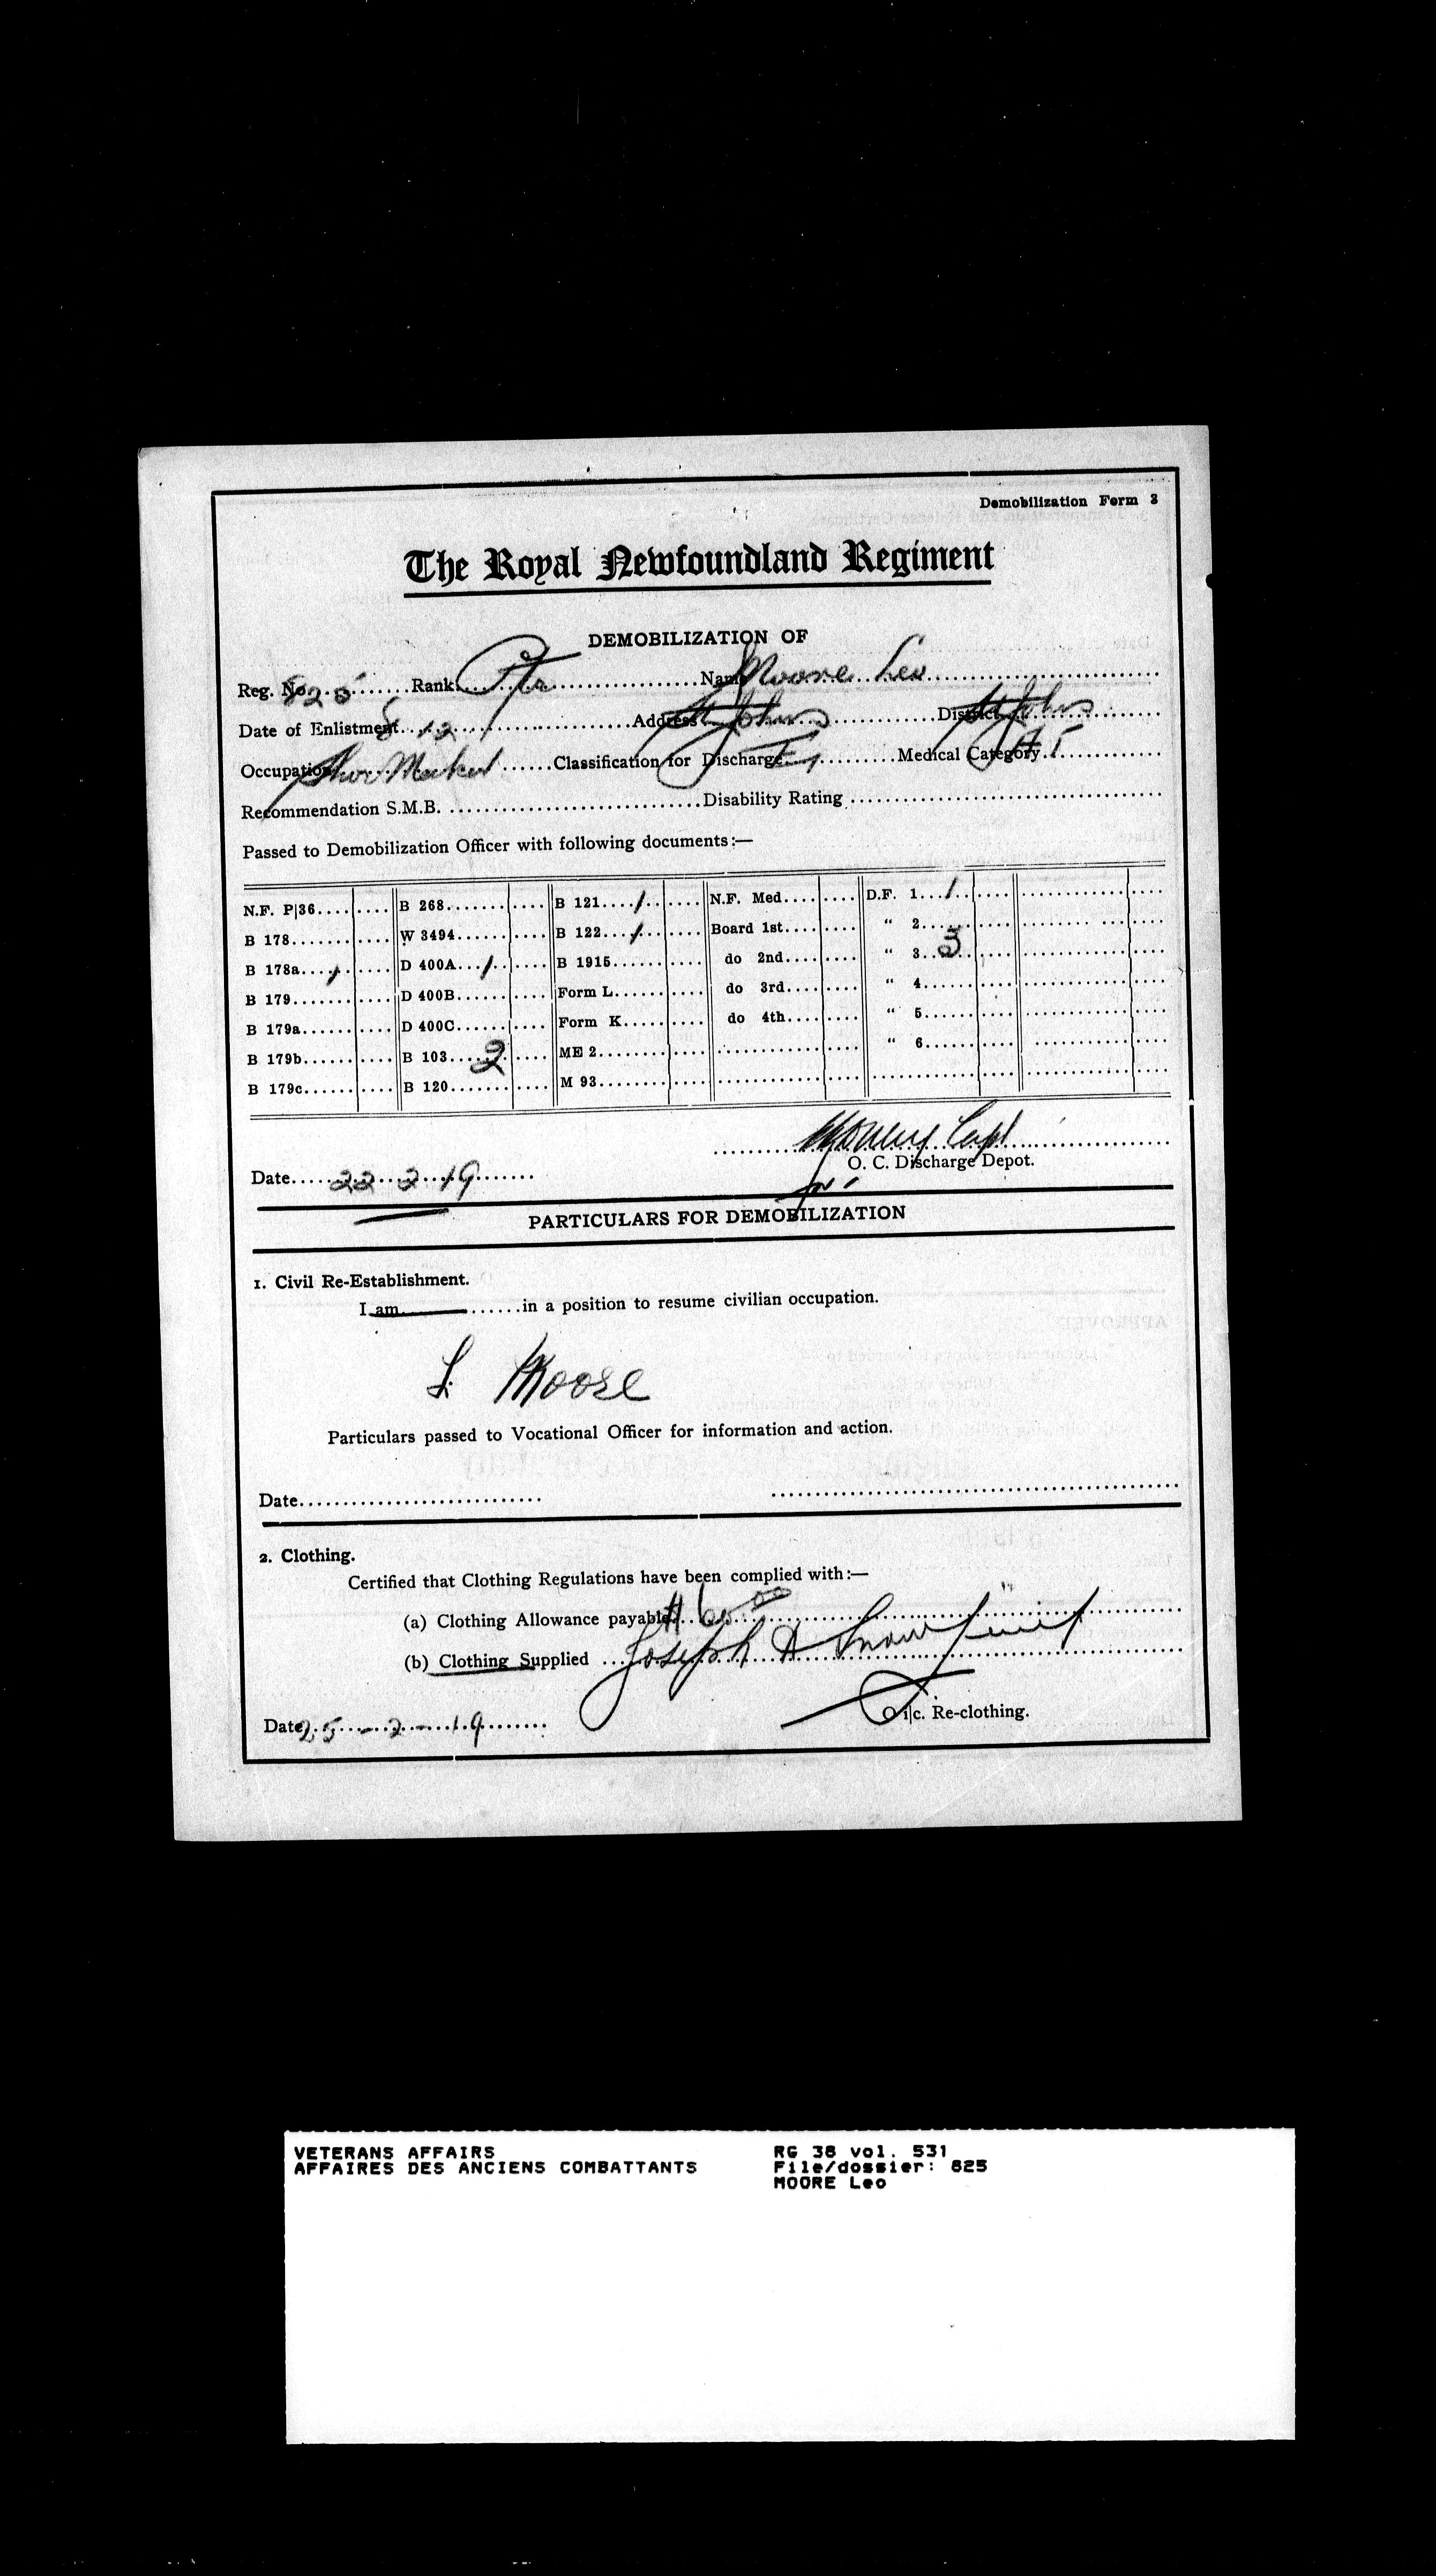 Demobilization Form 3
The Royal Newfoundland Regiment
DEMOBILIZATION OF
Reg. No. 825 Rank Pte Name Moore Leo
Date of Enlistment Address St Johns District St Johns
Occupation Shoe Maker Classification for Discharge Medical Category
Recommendation S.M.B. Disability Rating
Passed to Demobilization Officer with following documents:—
N.F. P|36 B 268 B 121 / N.F. Med. D.F. 1 /
B 178 W 3494 B 122 / Board 1st " 2
B 178a / D 400A / B 1915 do 2nd " 3 3
B 179 D 400B Form L do 3rd " 4
B 179a D 400C Form K do 4th " 5
B 179b B 103 2 ME 2 " 6
B 179c B 120 M 93
Capt
O. C. Discharge Depot.
Date 22 2 19
for
PARTICULARS FOR DEMOBILIZATION
1. Civil Re-Establishment.
I am in a position to resume civilian occupation.
L. Moore
Particulars passed to Vocational Officer for information and action.
Date
2. Clothing.
Certified that Clothing Regulations have been complied with:—
(a) Clothing Allowance payable $60.00
(b) Clothing Supplied Joseph A Snow
O i|c. Re-clothing.
Date 25-2-19
VETERANS AFFAIRS RG 38 vol. 531
AFFAIRES DES ANCIENS COMBATTANTS File/dossier: 825
MOORE Leo